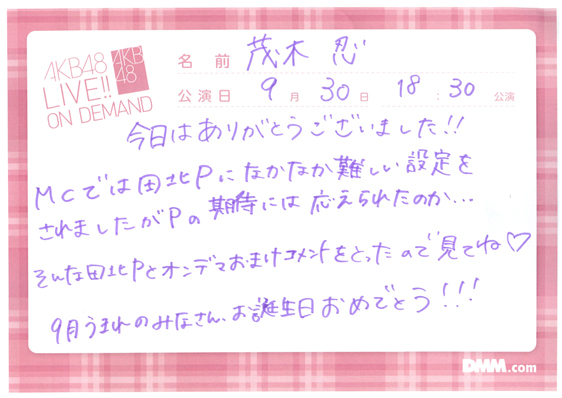 AKB48
LIVE!!
ON DEMAND
AKB
48
名前 茂木 忍
公演日 9月30日 18:30公演
今日はありがとうございました!!
MCでは田北Pになかなか難しい設定を
されましたがPの期待には応えられたのか...
そんな田北Pとオンデマおまけコメントをとったので見てね♡
9月うまれのみなさん、お誕生日おめでとう!!!
DMM.com